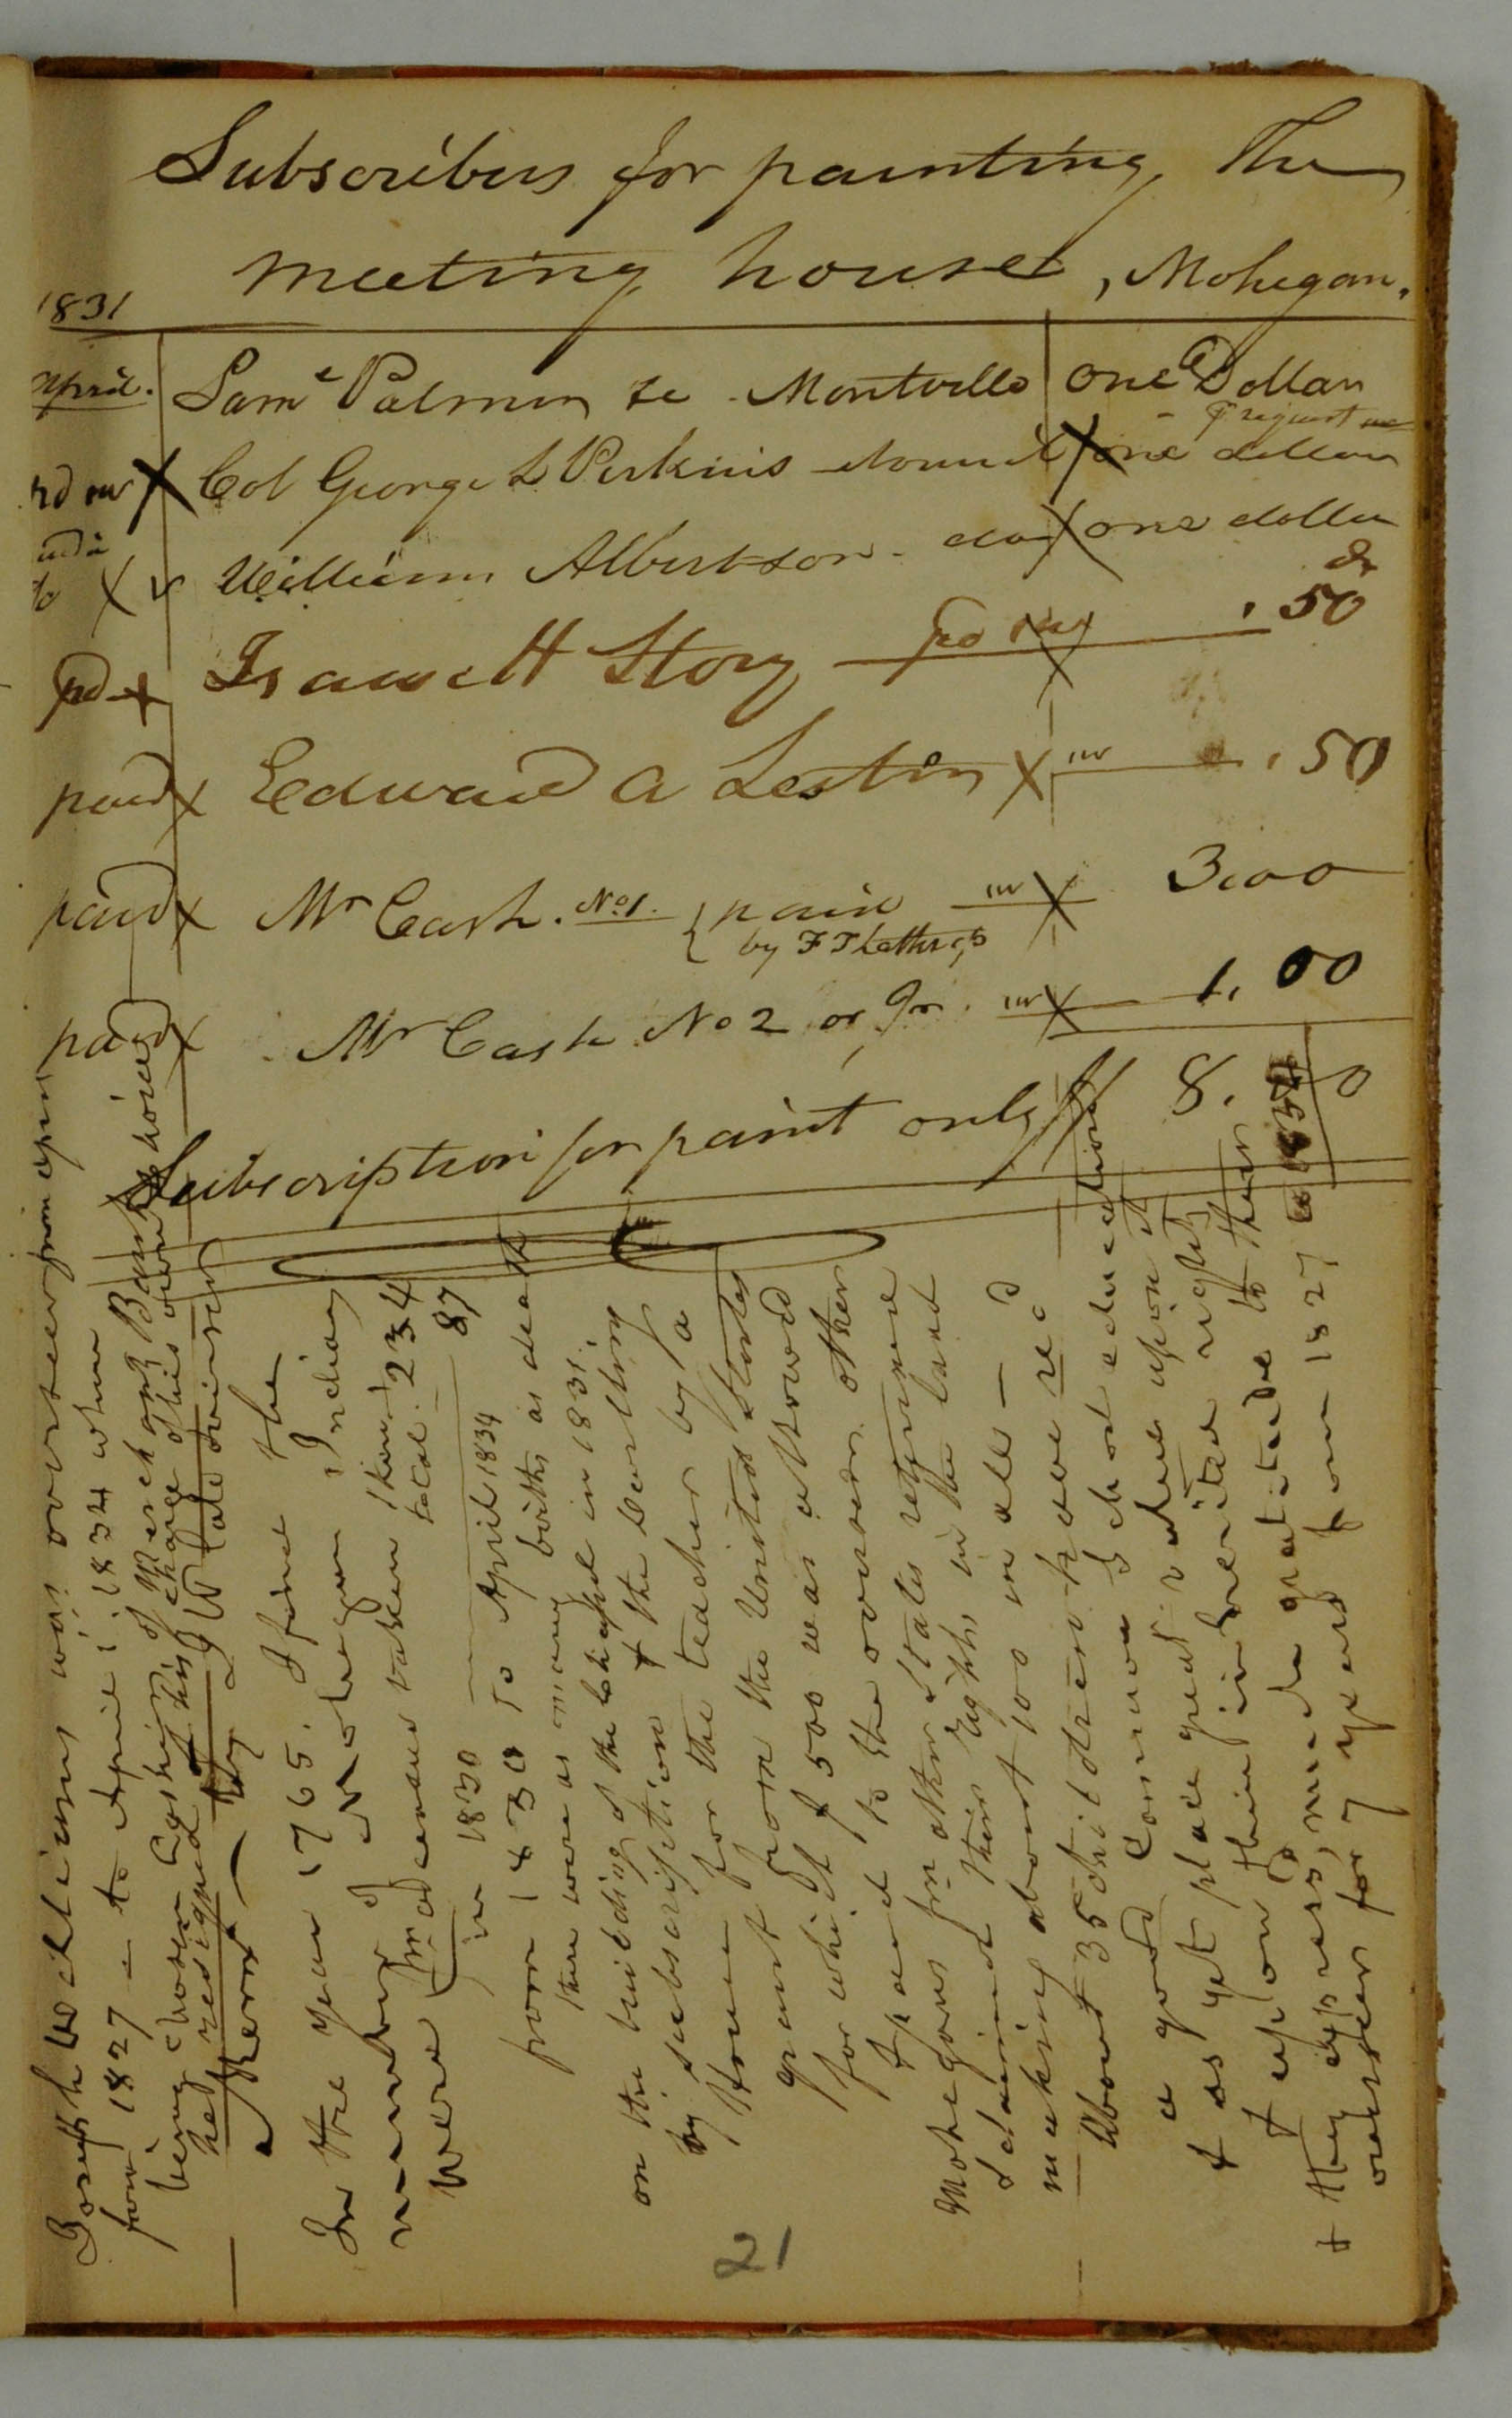 Subscribers for painting, The
meeting house, Mohegan.
1831
April. Saml Palmer se Montville one Dollar
request
X Col George L Perkins X one dollar
do X William Albertson - do X one dollar
pd X Isaac H Story pd X .50
paid X Edward A Lestin X .50
paid X Mr Cash. No 1. { paid X 3.00
by F T Lathrop
paid X Mr Cash No 2 or Jr. X 1.00
Subscription for paint only 8. 0
Joseph Williams was overseer from april
from 1827 - to April 1834 when
being chosen Cashier of Merchants Bank
he resigned his charge
to J W
Afterw
In the year 1765. I find the
number of Mohegan Indians
were { in a census taken then total. 234
in 1830 — 87
from 1830 To April 1834
there were as many births as deaths
on the building of the Chapel in 1831.
by subscription & the building
House for the teacher by a
grant from the United States
for which $500 was allowed
& paid to the overseer. other
Mohegans from other States returned
& claimed their rights in the land
making about 100 in all —
About 35 children have recd
a good Common School education
& as yet place great value upon it
& upon their inherited rights
& they express, much gratitude to their
overseer for 7 years from 1827 to 1834
21